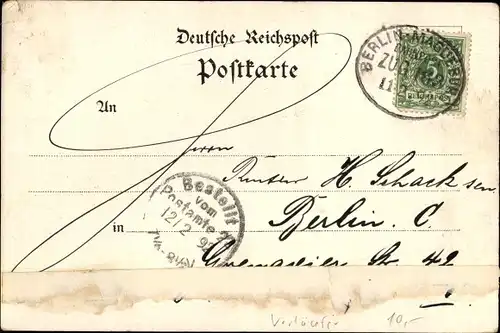 Deutsche Reichspost
Postkarte
BERLIN-MAGDEBURG
ZUG
11
5
PFENNIG
An
Herrn
Rentier H. Schack sen
Bestellt
vom
Postamte 2
12/2 9
in
Berlin. C.
Grenadier Str. 42
I.
10,-